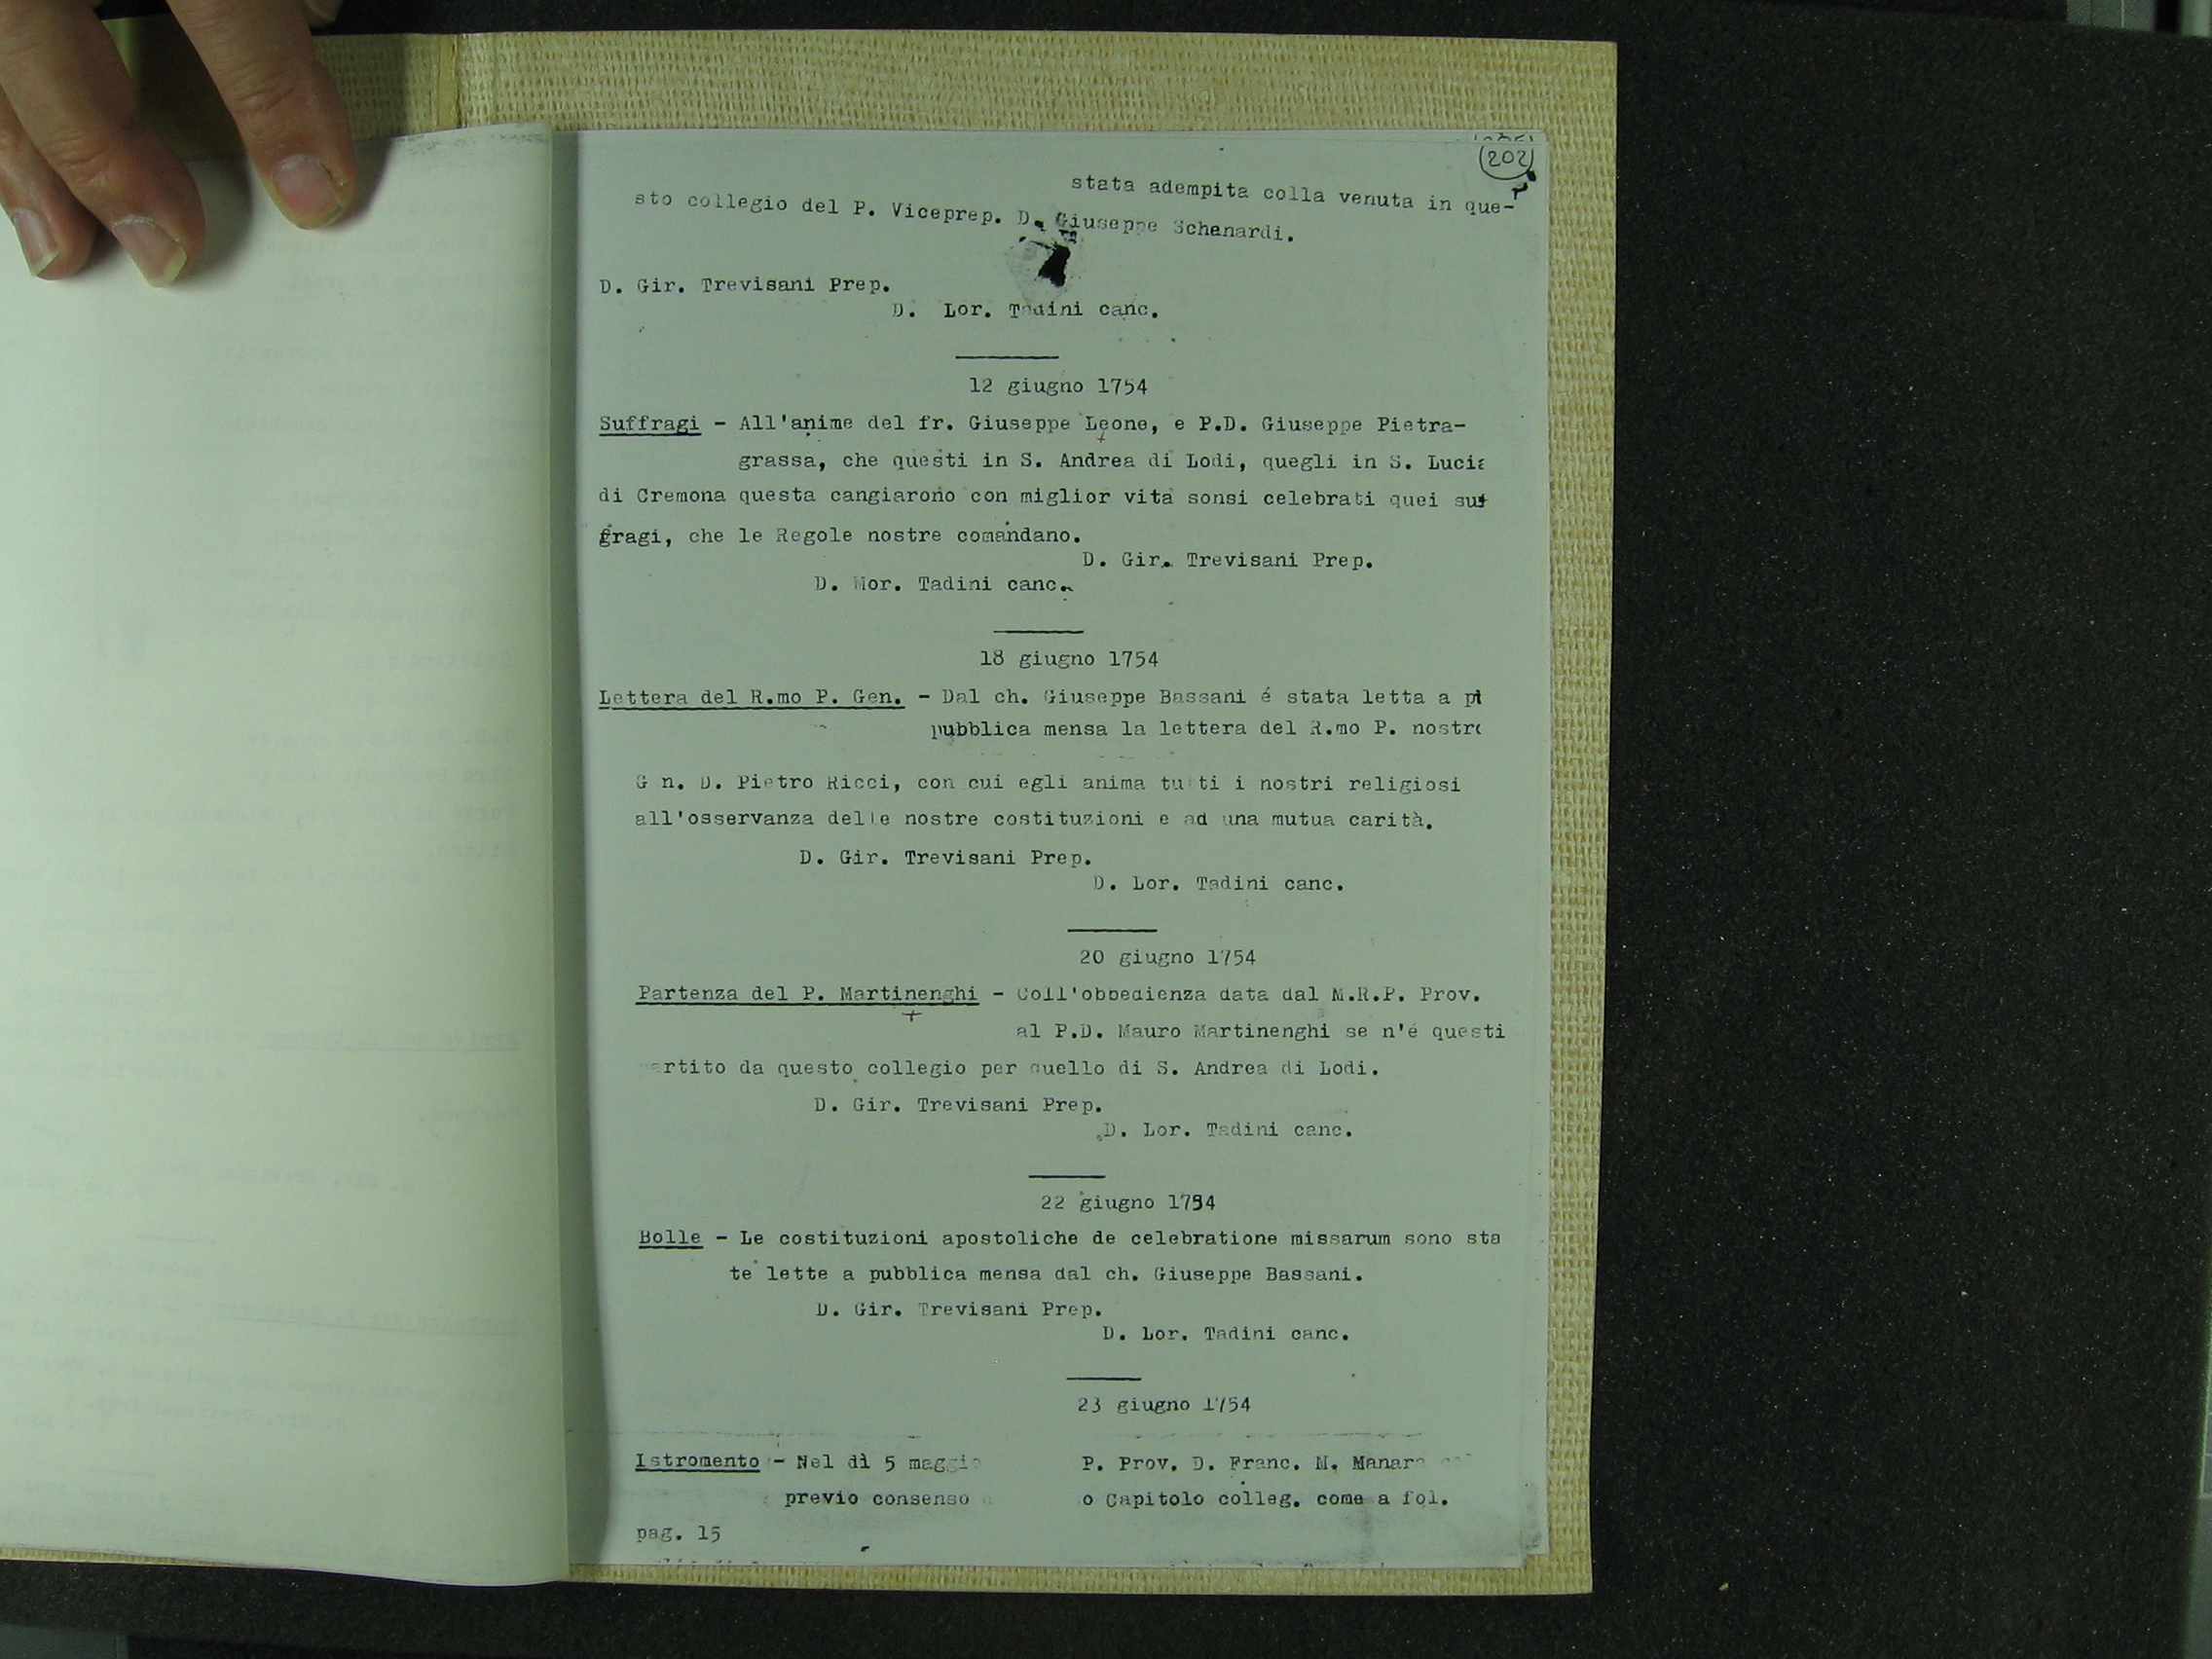 (202)
stata adempita colla venuta in que-
sto collegio del P. Viceprep. D. Giuseppe Schenardi.
D. Gir. Trevisani Prep.
D. Lor. Tadini canc.
12 giugno 1754
Suffragi - All'anime del fr. Giuseppe Leone, e P.D. Giuseppe Pietra-
grassa, che questi in S. Andrea di Lodi, quegli in S. Lucia
di Cremona questa cangiarono con miglior vita sonsi celebrati quei suf
fragi, che le Regole nostre comandano.
D. Gir. Trevisani Prep.
D. Mor. Tadini canc.
18 giugno 1754
Lettera del R.mo P. Gen. - Dal ch. Giuseppe Bassani é stata letta a
pubblica mensa la lettera del R.mo P. nostro
G n. D. Pietro Ricci, con cui egli anima tutti i nostri religiosi
all'osservanza delle nostre costituzioni e ad una mutua carità.
D. Gir. Trevisani Prep.
D. Lor. Tadini canc.
20 giugno 1754
Partenza del P. Martinenghi - Coll'obbedienza data dal M.R.P. Prov.
al P.D. Mauro Martinenghi se n'é questi
artito da questo collegio per quello di S. Andrea di Lodi.
D. Gir. Trevisani Prep.
D. Lor. Tadini canc.
22 giugno 1754
Bolle - Le costituzioni apostoliche de celebratione missarum sono sta
te lette a pubblica mensa dal ch. Giuseppe Bassani.
D. Gir. Trevisani Prep.
D. Lor. Tadini canc.
23 giugno 1754
Istromento - Nel dì 5 maggio P. Prov. D. Franc. M. Manara
previo consenso o Capitolo colleg. come a fol.
pag. 15